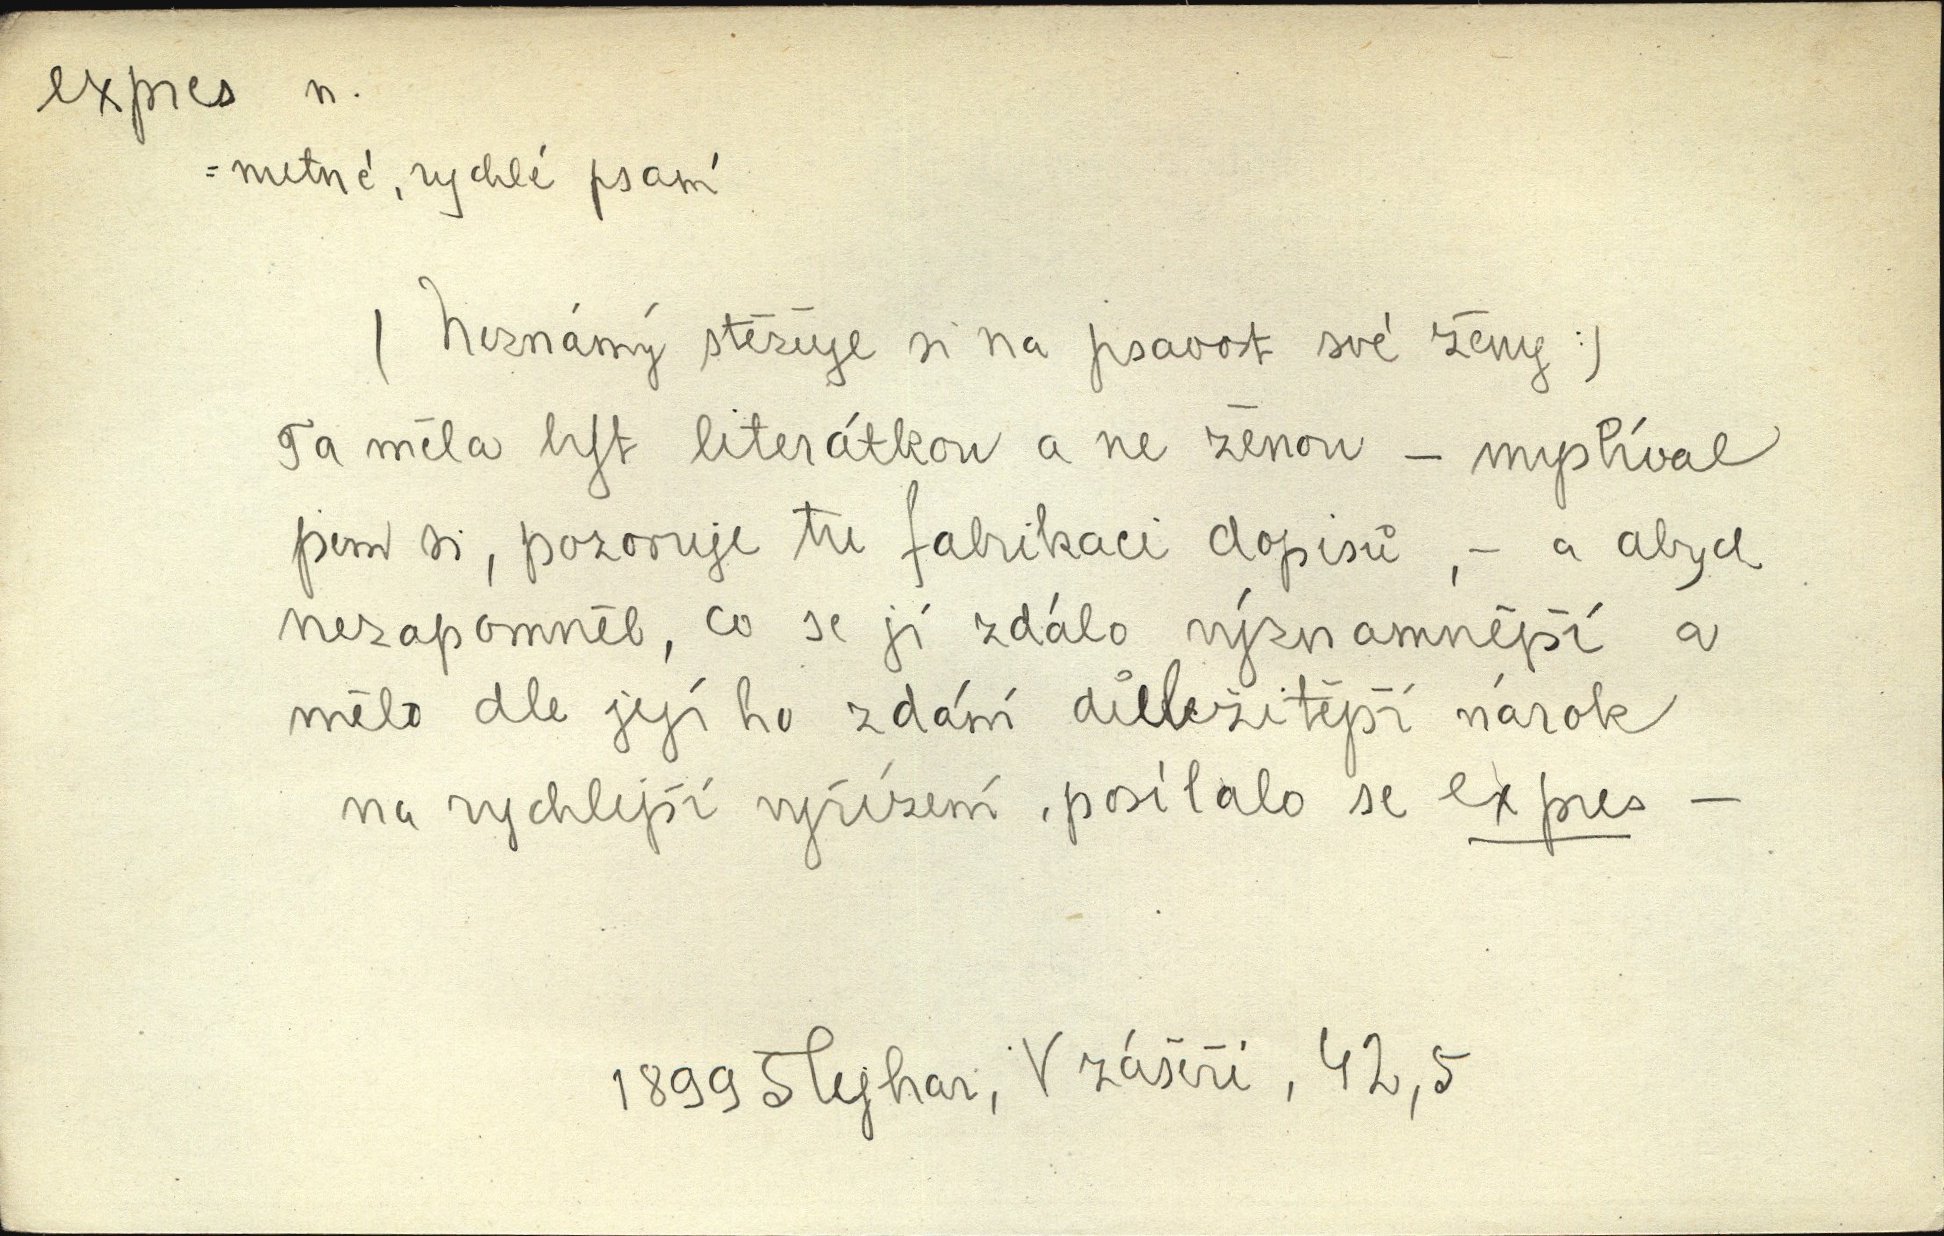 expres n.
= nutné, rychlé psaní
(Neznámý stěžuje si na psavost své ženy:)
Ta měla být literátkou a ne ženou – myslíval
jsem si, pozoruje tu fabrikaci dopisů, – a abych
nezapomněl, co se jí zdálo významnější a
mělo dle jejího zdání důležitější nárok
na rychlejší vyřízení, posílalo se expres –
1899 Šlejhar, V zášeří, 42,5